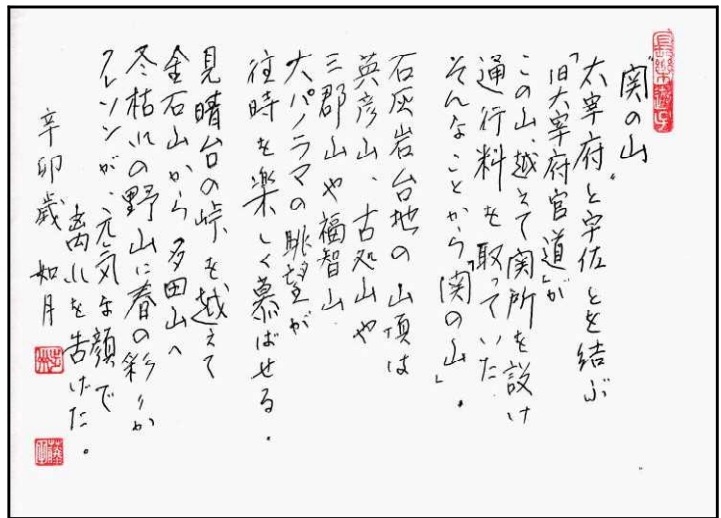 "関の山"
太宰府と宇佐とを結ぶ
「旧大宰府官道」が
この山、越えて関所を設け
通行料を取っていた
そんなことから「関の山」。
石灰岩台地の山頂は
英彦山、古処山や
三郡山や福智山
大パノラマの眺望が
往時を楽しく慕ばせる。
見晴台の峠を越えて
金石山から多田山へ
冬枯れの野山に春の彩りか
が、元気な顔で
を告げた。
辛卯歳 如月